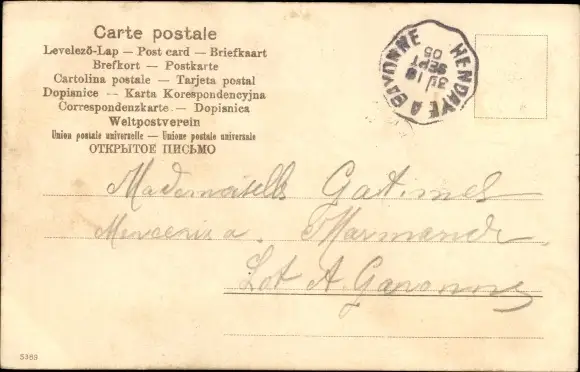 Carte postale
Levelező-Lap — Post card — Briefkaart
Brefkort — Postkarte
Cartolina postale — Tarjeta postal
Dopisnice — Karta Korespondencyjna
Correspondenzkarte — Dopisnica
Weltpostverein
Union postale universelle — Unione postale universale
ОТКРЫТОЕ ПИСЬМО
HENDAYE A BAYONNE
SEPT
05
Mademoiselle Gatimel
Mercerie a. Marmande
Lot & Garonne
5389